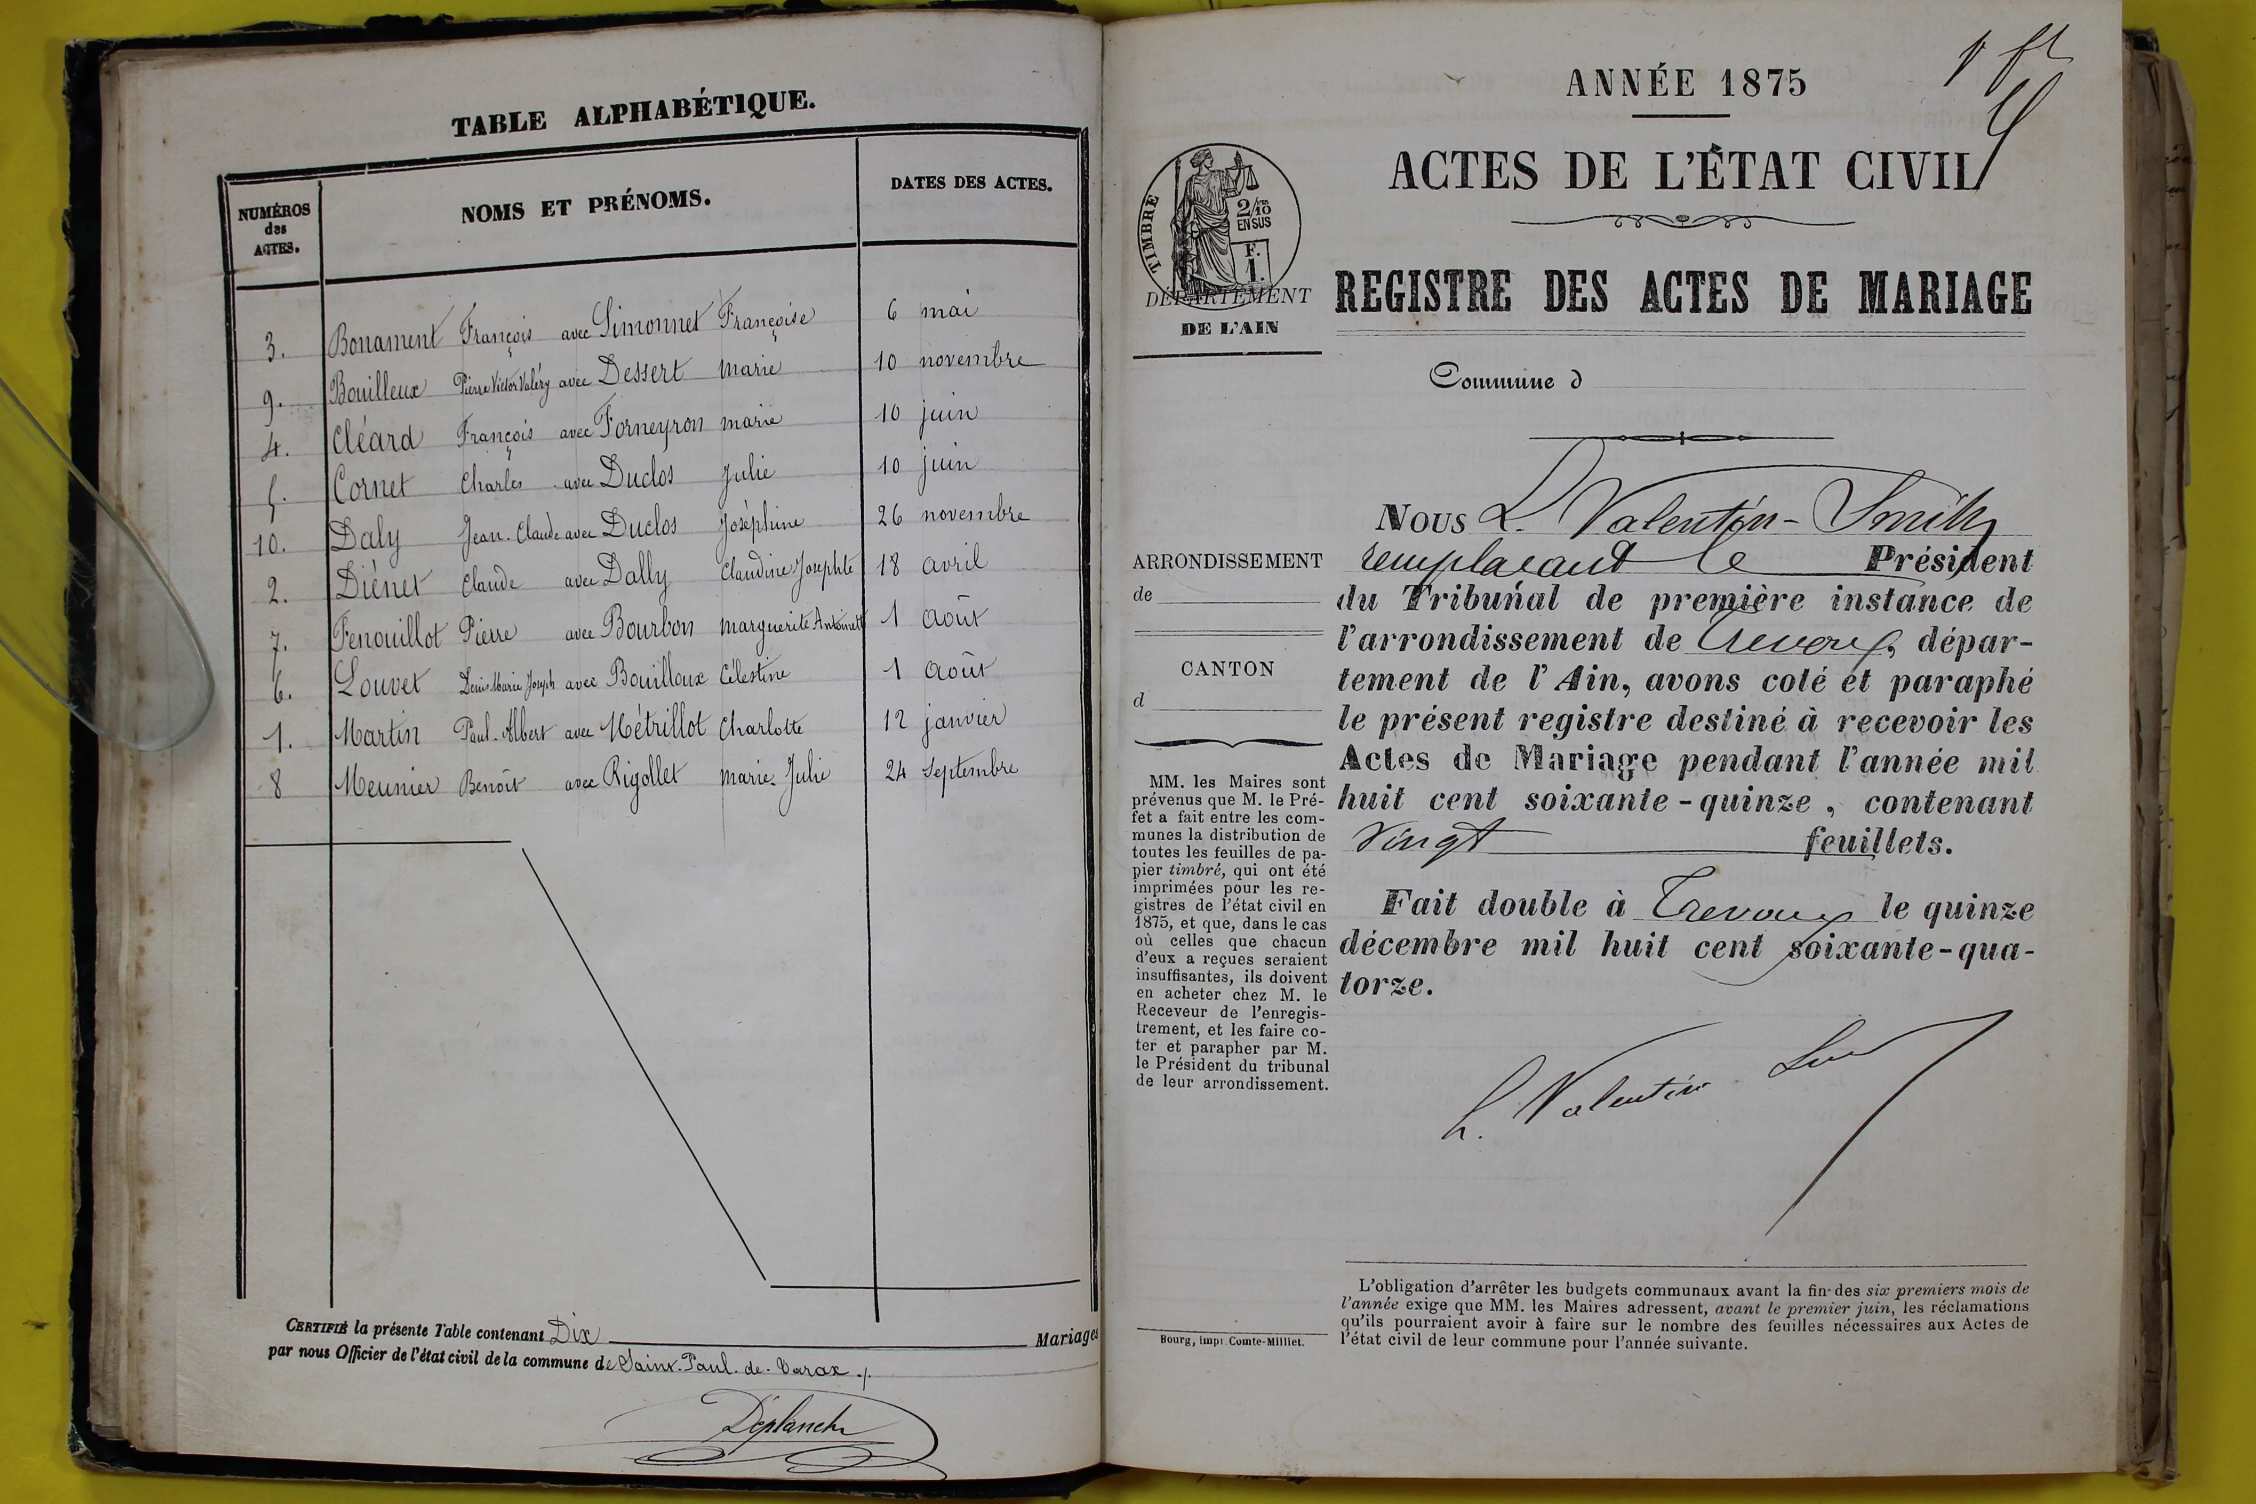 TABLE ALPHABÉTIQUE.
NUMÉROS des ACTES.
NOMS ET PRÉNOMS.
DATES DES ACTES.
3. Bonament François avec Simonnet Françoise 6 mai
9. Bouilleux Pierre Victor Valéry avec Dessert marie 10 novembre
4. Cléard François avec Forneyron marie 10 juin
5. Cornet Charles avec Duclos Julie 10 juin
10. Daly Jean-Claude avec Duclos Joséphine 26 novembre
2. Diénet Claude avec Dally Claudine Josephte 18 avril
7. Fenouillot Pierre avec Bourbon marguerite Antoinette 1 Août
6. Louvet Denis Marie Joseph avec Bouilloux Célestine 1 Août
1. Martin Paul-Albert avec Métrillot Charlotte 12 janvier
8 Meunier Benoît avec Rigollet marie-Julie 24 septembre
CERTIFIÉ la présente Table contenant Dix Mariages
par nous Officier de l'état civil de la commune de Saint-Paul-de-Varax
Déplanche
ANNÉE 1875
ACTES DE L'ÉTAT CIVIL
TIMBRE
2/10 EN SUS
F. 1.
DÉPARTEMENT
DE L'AIN
REGISTRE DES ACTES DE MARIAGE
Commune d
ARRONDISSEMENT
de
CANTON
d
MM. les Maires sont
prévenus que M. le Pré-
fet a fait entre les com-
munes la distribution de
toutes les feuilles de pa-
pier timbré, qui ont été
imprimées pour les re-
gistres de l'état civil en
1875, et que, dans le cas
où celles que chacun
d'eux a reçues seraient
insuffisantes, ils doivent
en acheter chez M. le
Receveur de l'enregis-
trement, et les faire co-
ter et parapher par M.
le Président du tribunal
de leur arrondissement.
Bourg, impr. Comte-Milliet.
NOUS L. Valentin-Smith
remplaçant le Président
du Tribunal de première instance de
l'arrondissement de Trevoux, dépar-
tement de l'Ain, avons coté et paraphé
le présent registre destiné à recevoir les
Actes de Mariage pendant l'année mil
huit cent soixante-quinze, contenant
vingt feuillets.
Fait double à Trevoux le quinze
décembre mil huit cent soixante-qua-
torze.
L. Valentin Smith
L'obligation d'arrêter les budgets communaux avant la fin des six premiers mois de
l'année exige que MM. les Maires adressent, avant le premier juin, les réclamations
qu'ils pourraient avoir à faire sur le nombre des feuilles nécessaires aux Actes de
l'état civil de leur commune pour l'année suivante.